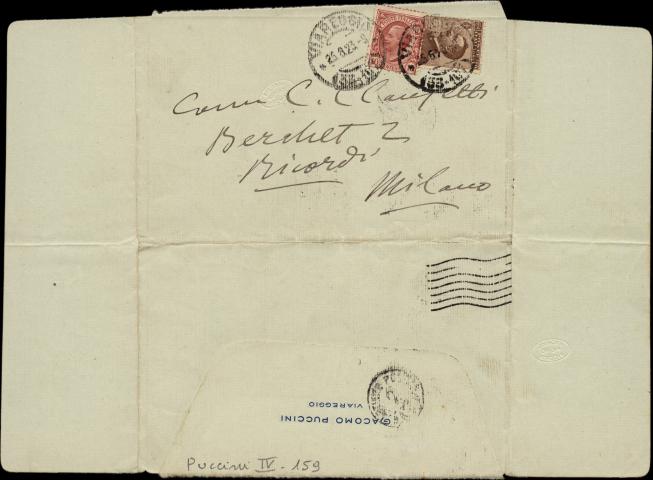 VIAREGGIO
Comm C. Clausetti
Berchet 2
Ricordi
Milano
GIACOMO PUCCINI
VIAREGGIO
Puccini IV - 159